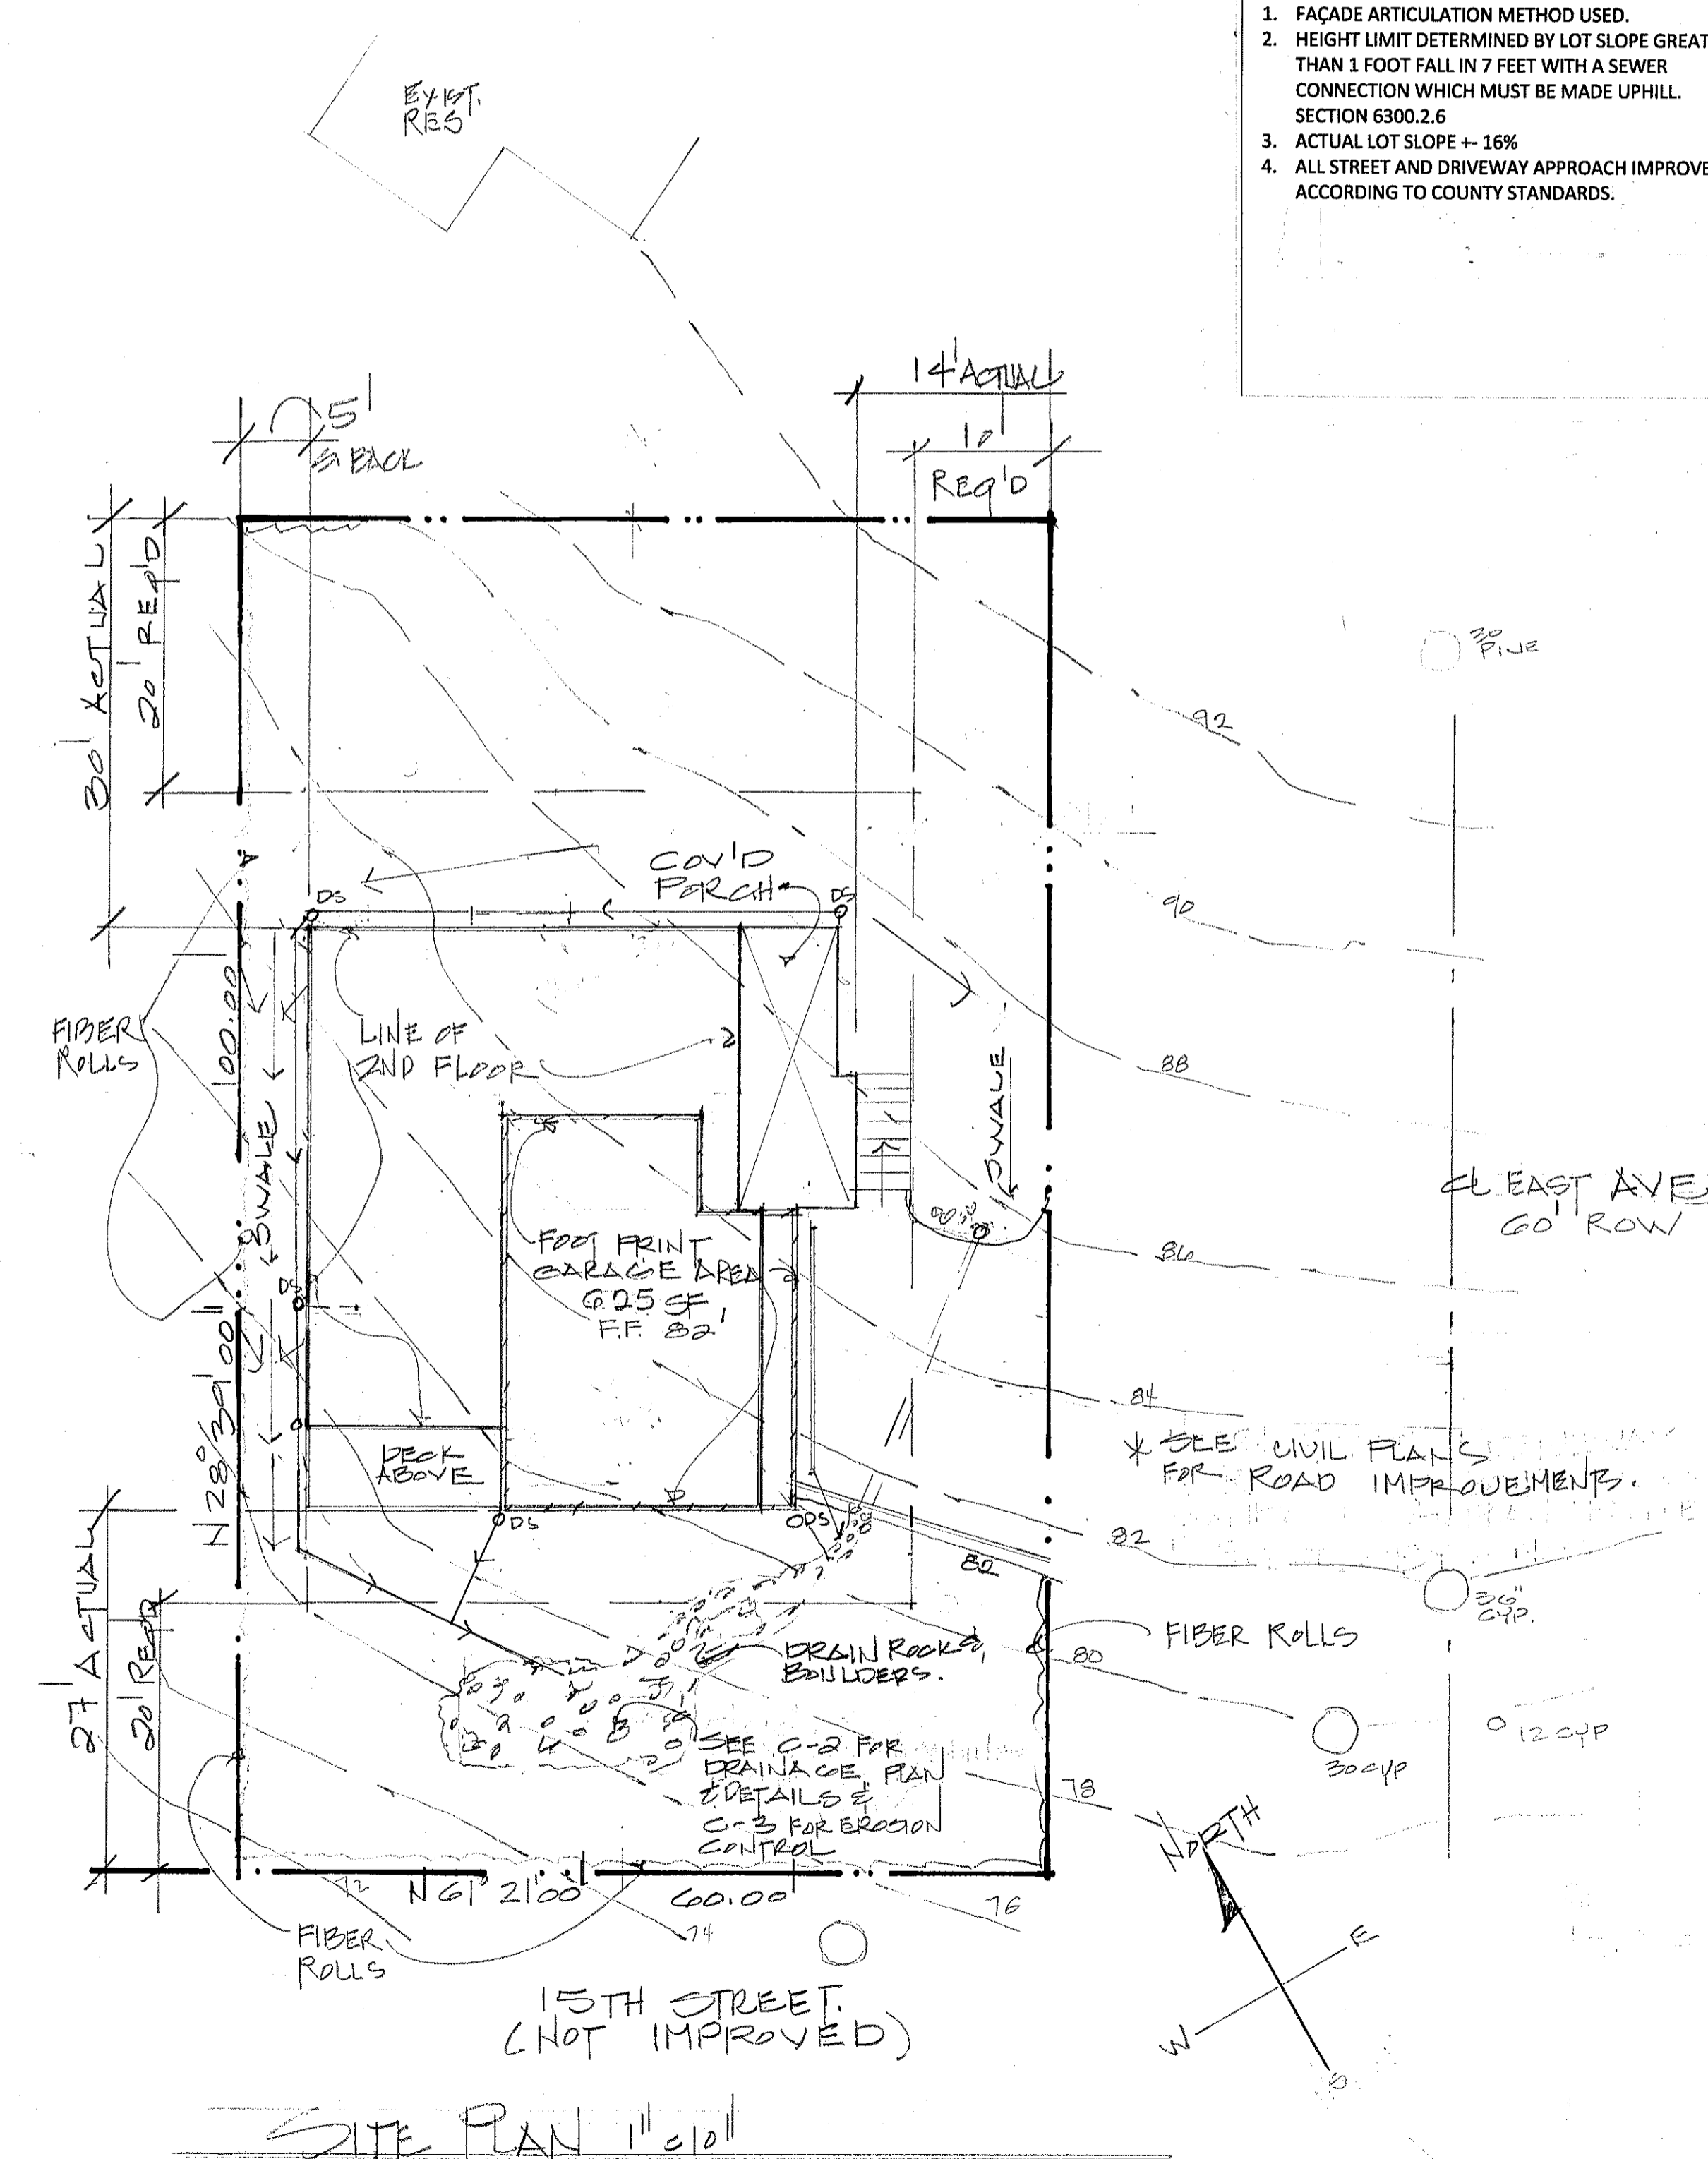 1. FAÇADE ARTICULATION METHOD USED.
2. HEIGHT LIMIT DETERMINED BY LOT SLOPE GREAT
THAN 1 FOOT FALL IN 7 FEET WITH A SEWER
CONNECTION WHICH MUST BE MADE UPHILL.
SECTION 6300.2.6
3. ACTUAL LOT SLOPE +- 16%
4. ALL STREET AND DRIVEWAY APPROACH IMPROVE
ACCORDING TO COUNTY STANDARDS.
EXIST.
RES
14' ACTUAL
5'
BACK
10'
REQ'D
30' ACTUAL
20' REQ'D
30
PINE
92
COV'D
PORCH
DS
DS
90
100.00
FIBER
ROLLS
LINE OF
2ND FLOOR
88
SWALE
SWALE
CL EAST AVE
60' ROW
86
FOOT PRINT
GARAGE AREA
625 SF
F.F. 82'
DS
N 28° 39' 00"
84
* SEE CIVIL PLANS
FOR ROAD IMPROVEMENTS.
DECK
ABOVE
DS
DS
82
82
36"
CYP.
FIBER ROLLS
27' ACTUAL
20' REQD
DRAIN ROCK &
BOULDERS.
80
SEE C-2 FOR
DRAINAGE PLAN
& DETAILS &
C-3 FOR EROSION
CONTROL
12 CYP
30 CYP
78
NORTH
72
N 61° 21' 00"
60.00'
76
74
FIBER
ROLLS
E
15TH STREET.
(NOT IMPROVED)
W
S
SITE PLAN 1" = 10"